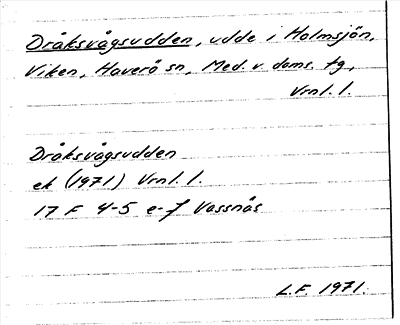 Dråksvågsudden, udde i Holmsjön,
Viken, Haverö sn, Med. v. doms. tg,
Vrnl. l.
Dråksvågsudden
ek (1971) Vrnl. l.
17 F 4-5 e-f Vassnås
L.F. 1971.